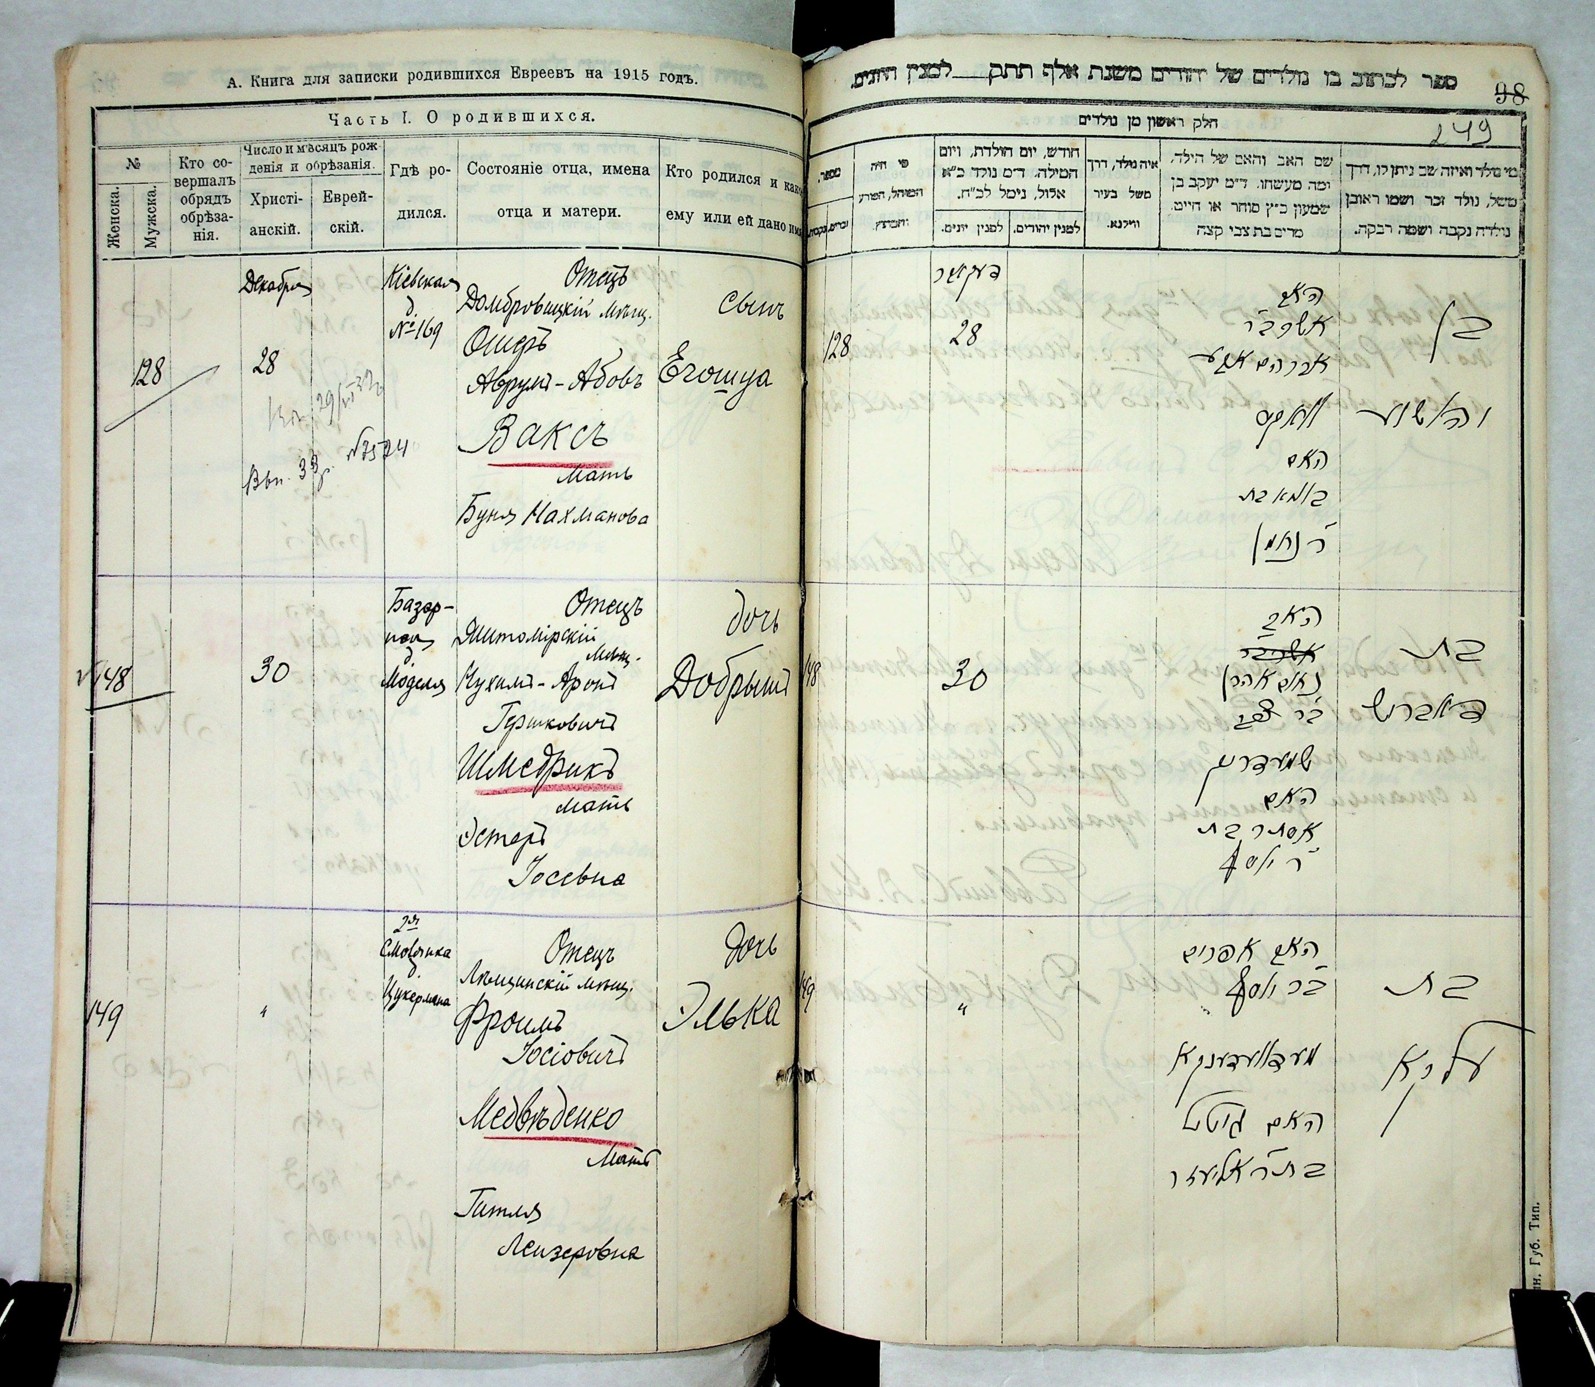 А. Книга для записки родившихся Евреевъ на 1915 годъ.
Часть I. О родившихся.
№
Женска.
Мужска.
Кто со-
вершалъ
обрядъ
обрѣза-
нія.
Число и мѣсяцъ рож
денія и обрѣзанія.
Христі-
анскій.
Еврей-
скій.
Гдѣ ро-
дился.
Состояніе отца, имена
отца и матери.
Кто родился и как
ему или ей дано им
128
Декабря
28
№ 3524
Кіевская
д.
№ 169
Отецъ
Домбровицкій мѣщ.
Ошеръ
Аврумъ-Абовъ
Ваксъ
Мать
Буня Нахманова
сынъ
Егошуа
148
30
Базар-
ная
д.
Моделя
Отецъ
Житомірскій
мѣщ.
Нухимъ-Аронъ
Гершковичъ
Шмедрикъ
Мать
Эстеръ
Іосевна
дочь
Добрышъ
149
"
2я
Смолянка
д.
Цукермана
Отецъ
Лѣщинскій мѣщ.
Фроимъ
Іосіовичъ
Медвѣденко
Мать
Гитля
Лейзеровна
дочь
Элька
ספר לכתוב בו נולדים של יהודים משנת אלף תתק למנין היונים.
98
249
חלק ראשון מן נולדים
מספר,
זכרים,
נקבות,
מי היה
המוהל, הפורע
והמוצץ.
חודש, יום הולדת, ויום
המילה. ד״מ נולד כ״א
אלול, נימל לכ״ח.
למנין יונים.
למנין יהודים.
איה נולד, דרך
משל בעיר
ווילנא.
שם האב והאם של הילד,
ומה מעשהו. ד״מ יעקב בן
שמעון כ״ץ סוחר או חייט.
מרים בת צבי קצה
מי נולד ואיזה שם ניתן לו, דרך
משל, נולד זכר ושמו ראובן
נולדה נקבה ושמה רבקה.
128
דעקאבר
28
האב
אשר ב״ר
אברהם אבא
וואקס
האם
בוניא בת
ר׳ נחמן
בן
יהושע
148
30
האב
נחום אהרן
ב״ר צבי
שמעדריק
האם
אסתר בת
ר׳ יוסף
בת
דאברוש
149
"
האב אפרים
ב״ר יוסף
מעדוועדענקא
האם גיטל
בת ר׳ אליעזר
בת
עלקא
ин. Губ. Тип.